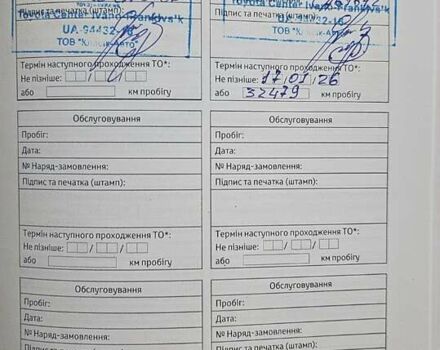 Підпис та печатка (штамп):
Toyota Center Ivano-Frankivs'k
UA-94432-16
ТОВ
Термін наступного проходження ТО*:
Не пізніше: / /
або км пробігу
Toyota Center Ivano-Frankivs'k
ТОВ
Термін наступного проходження ТО*:
Не пізніше: 17/01/26
або 32479 км пробігу
Обслуговування
Пробіг:
Дата:
№ Наряд-замовлення:
Підпис та печатка (штамп):
Термін наступного проходження ТО*:
Не пізніше: / /
або км пробігу
Обслуговування
Пробіг:
Дата:
№ Наряд-замовлення:
Підпис та печатка (штамп):
Термін наступного проходження ТО*:
Не пізніше: / /
або км пробігу
Обслуговування
Пробіг:
Дата:
№ Наряд-замовлення:
Підпис та печатка (штамп):
Обслуговування
Пробіг:
Дата:
№ Наряд-замовлення:
Підпис та печатка (штамп):